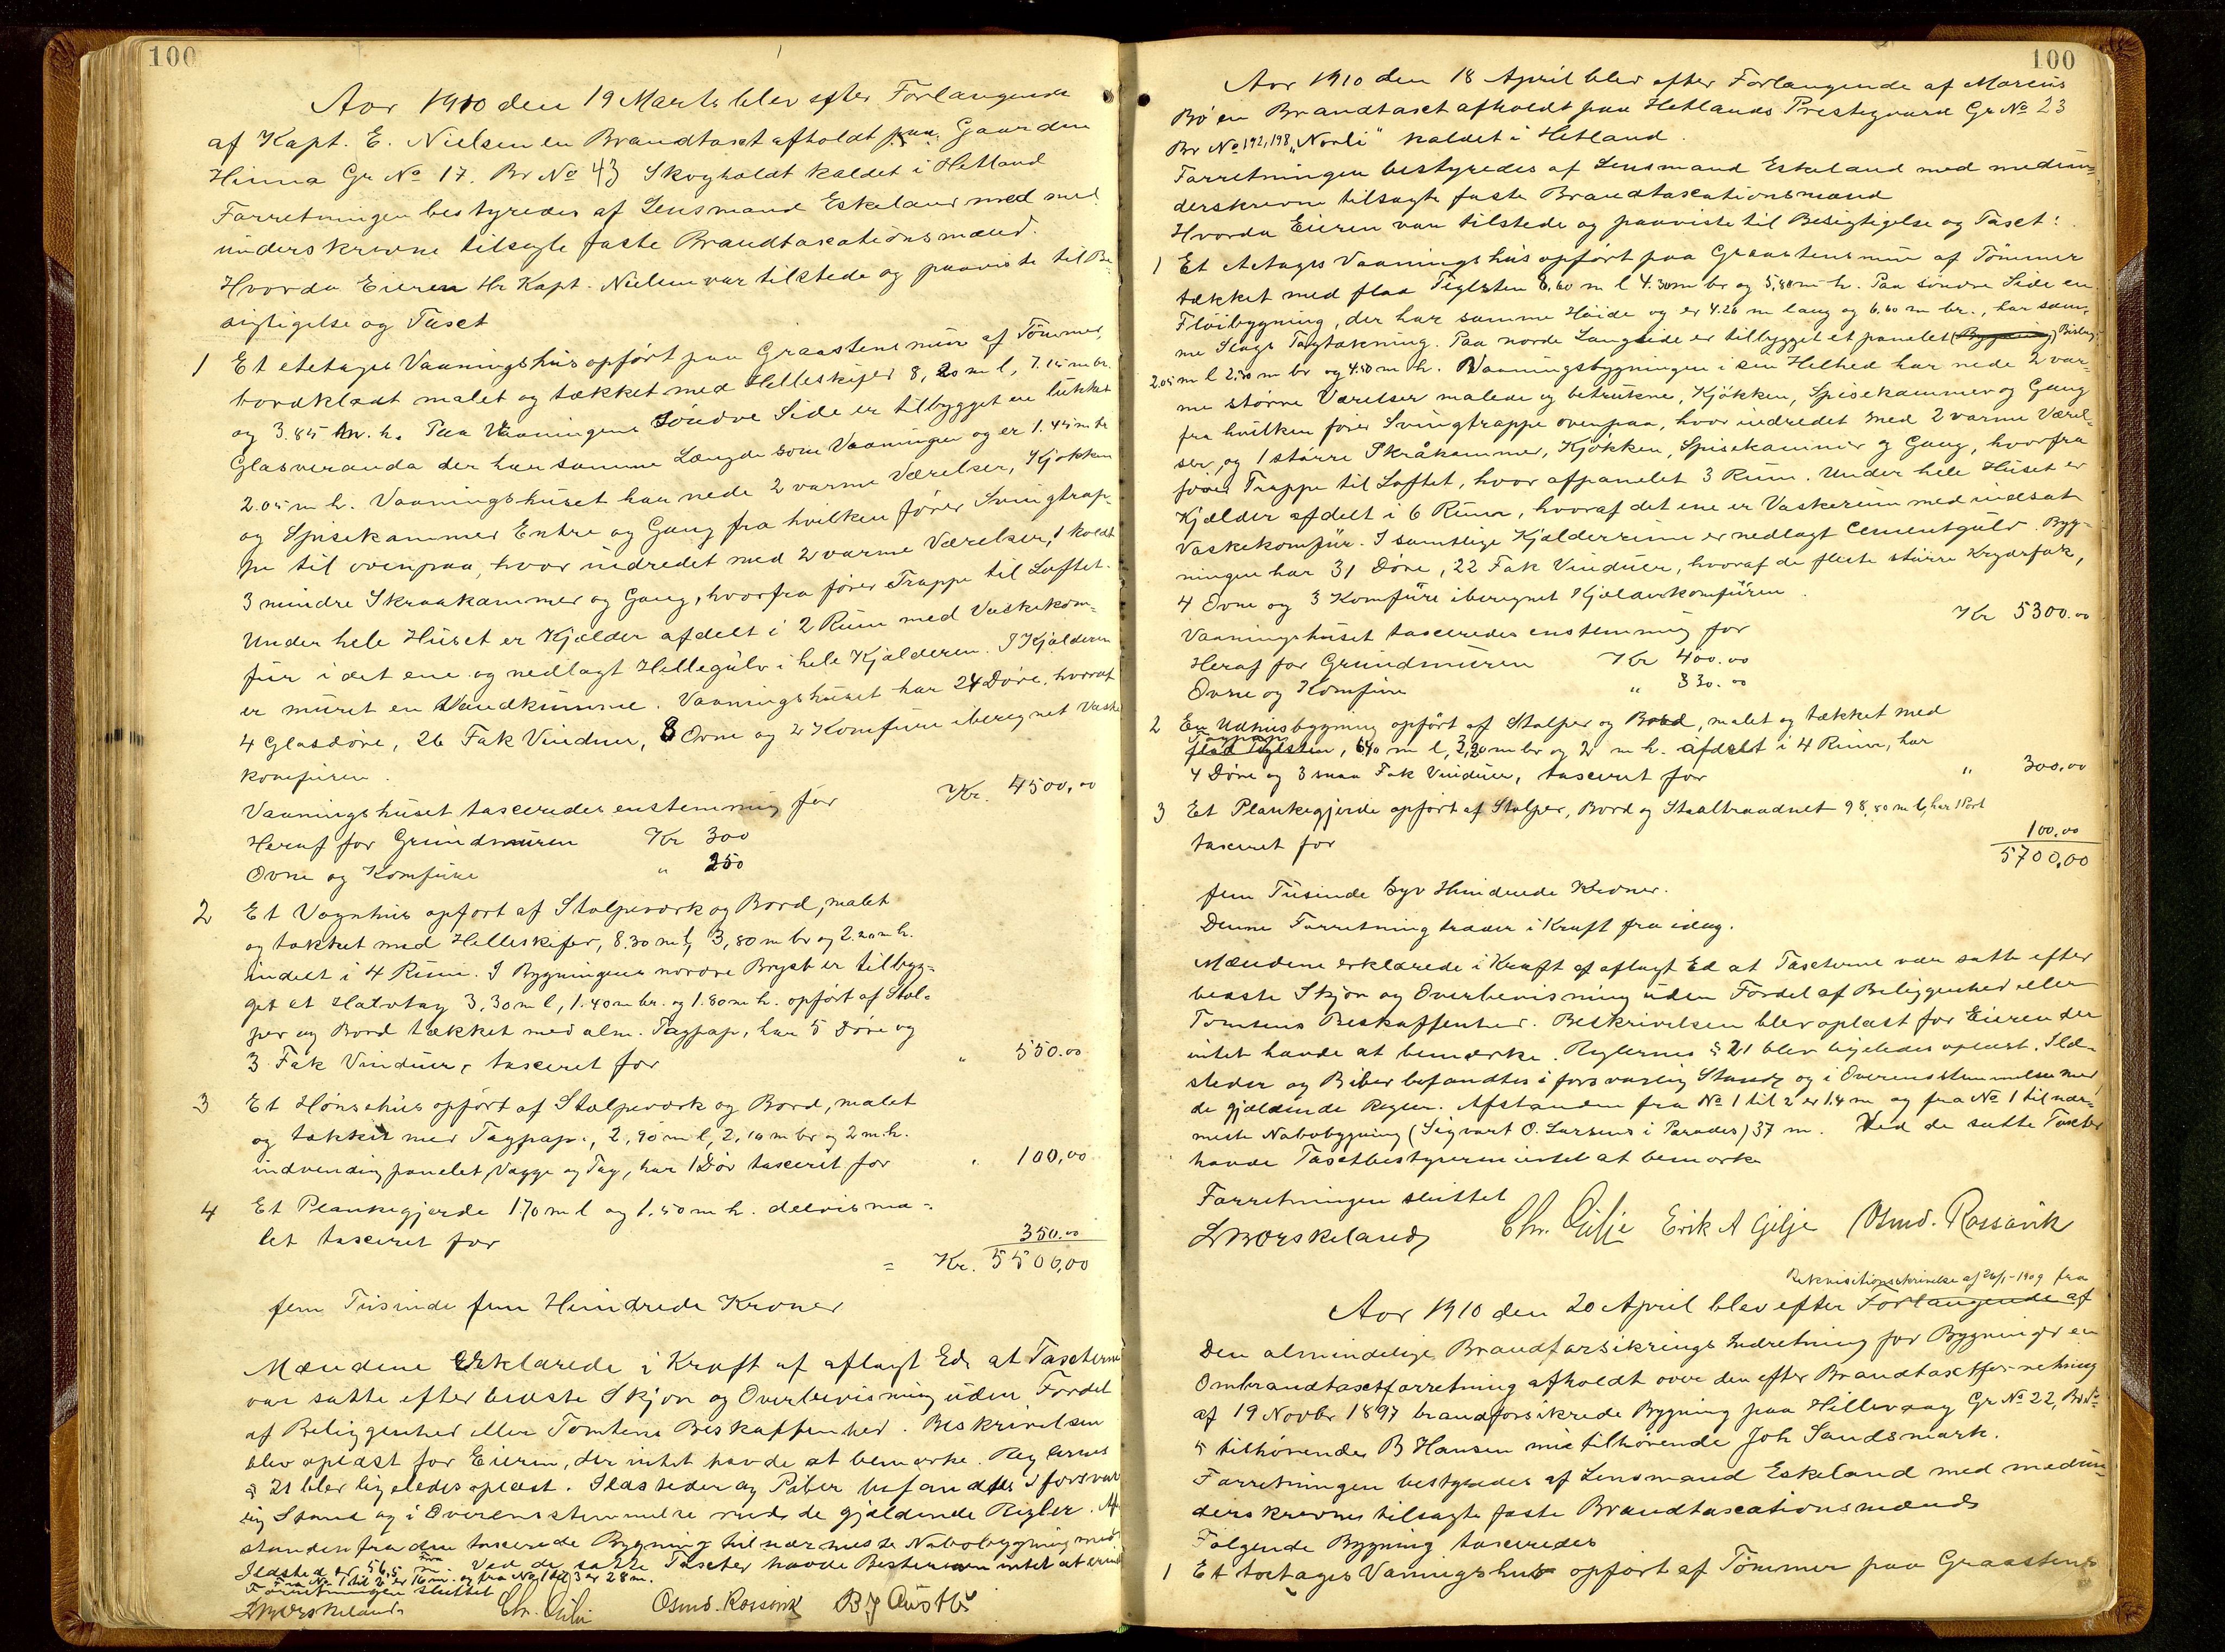 100
Aar 1910 den 19 Marts blev efter Forlangende
af Kapt. E. Nielsen en Brandtaxt afholdt paa Gaarden
Hinna Gr No 17. Br No 43 Skogholdt kaldet i Hetland
Forretningen bestyredes af Lensmand Eskeland med med
underskrevne tilsagte faste Brandtaxationsmænd.
Hvorda Eieren Hr Kapt. Nielsen var tilstede og paaviste til Be
sigtigelse og Taxt
1 Et etetages Vaaningshus opført paa Graastensmur af Tømmer,
bordklædt malet og tækket med Helleskifer 8,20 m l, 7.15 m br.
og 3.85 m. h. Paa Vaaningens Søndre Side er tilbygget en lukket
Glasveranda der har samme Længde som Vaaningen og er 1.45 m br
2.05 m h. Vaaningshuset har nede 2 varme Værelser, Kjøkken
og Spisekammer Entre og Gang fra hvilken fører Svingtrap-
pe til ovenpaa, hvor indredet med 2 varme Værelser, 1 koldt
3 mindre Skraakammer og Gang, hvorfra fører Trappe til Loftet.
Under hele Huset er Kjælder afdelt i 2 Rum med Vaskekom-
fur i det ene og nedlagt Hellegulv i hele Kjælderen. I Kjælderen
er muret en Vandkumme. Vaaningshuset har 24 Døre, hvoraf
4 Glasdøre, 26 Fak Vinduer, 3 Ovne og 2 Komfure iberegnet Vaske
komfuren.
Vaaningshuset taxeredes enstemmig for Kr. 4500,00
Heraf for Grundmuren Kr 300
Ovne og Komfure " 250
2 Et Vognhus opført af Stolpeværk og Bord, malet
og tækket med Helleskifer, 8.30 m l, 3,80 m br og 2.20 m h.
indelt i 4 Rum. I Bygningens nordre Bryst er tilbyg-
get et Halvtag 3,30 m l, 1.40 m br. og 1.80 m h. opført af Stol-
per og Bord tækket med alm. Tagpap, har 5 Døre og
3 Fak Vinduer, taxeret for " 550.00
3 Et Hønsehus opført af Stolpeværk og Bord, malet
og tækket med Tagpap., 2,90 m l, 2,10 m br og 2 m. h.
indvendig panelet Vægge og Tag, har 1 Dør taxeret for " 100,00
4 Et Plankegjerde 170 m l og 1.50 m h. delvis ma-
let taxeret for 350.00
= Kr. 5500,00
fem Tusinde fem Hundrede Kroner
Mændene erklærede i Kraft af aflagt Ed, at Taxterne
var satte efter bedste Skjøn og Overbevisning uden Fordel
af Beliggenhed eller Tomtens Beskaffenhed. Beskrivelsen
blev oplæst for Eieren, der intet havde at bemærke. Reglernes
§ 21 blev ligeledes oplæst. Ildsteder og Piber befandtes i forsvar
lig Stand og i Overensstemmelse med de gjældende Regler. Af
standen fra den taxerede Bygning til nærmeste Nabobygning med
Ildsted er 56,5 m. Ved de satte Taxter havde Bestyreren intet at erind
Fra No 1 til 2 er 16 m. og fra No 1 til 3 er 28 m.
Forretningen sluttet
Eskeland Chr. Gilje Osmd. Rossavik
100
Aar 1910 den 18 April blev efter Forlangende af Marcus
Bø en Brandtaxt afholdt paa Hetlands Prestegaard Gr No 23
Br No 192,198 „Norli" kaldet i Hetland.
Forretningen bestyredes af Lensmand Eskeland med medun-
derskrevne tilsagte faste Brandtaxationsmænd
Hvorda Eieren var tilstede og paaviste til Besigtigelse og Taxt:
1 Et etetages Vaaningshus opført paa Graastensmur af Tømmer
tækket med flaa Teglsten 8,60 m l 4.30 m br og 5,80 m h. Paa søndre Side en
Fløibygning, der har samme Høide og er 4.26 m lang og 6.60 m br., har sam-
me Slags Tagtækning. Paa nordre Langside er tilbygget et panelet (Bygning) Bislag
2.05 m l 2.50 m br og 4.50 m h. Vaaningsbygningen i sin Helhed har nede 2 var-
me større Værelser malede og betrukne, Kjøkken, Spisekammer og Gang
fra hvilken fører Svingtrappe ovenpaa, hvor indredet med 2 varme Værel-
ser, og 1 større Skråkammer, Kjøkken, Spisekammer og Gang, hvorfra
fører Trappe til Loftet, hvor afpanelet 3 Rum. Under hele Huset er
Kjælder afdelt i 6 Rum, hvoraf det ene er Vaskerum med indsat
Vaskekomfur. I samtlige Kjælderrum er nedlagt Cementgulv. Byg-
ningen har 31 Døre, 22 Fak Vinduer, hvoraf de fleste større Krydsfak,
4 Ovne og 3 Komfure iberegnet Kjælderkomfuren.
Vaaningshuset taxeredes enstemmig for Kr 5300.00
Heraf for Grundmuren Kr 400.00
Ovne og Komfure " 330.00
2 En Udhusbygning opført af Stolper og Bord, malet og tækket med
Tagpap
flad Teglsten, 6,40 m l, 3,20 m br og 2 m h. afdelt i 4 Rum, har
4 Døre og 3 smaa Fak Vinduer, taxeret for " 300,00
3 Et Plankegjerde opført af Stolper, Bord og Staaltraadnet 98,50 m l, har 1 Port
taxeret for 100.00
5700,00
fem Tusinde Syv Hundrede Kroner.
Denne Forretning træder i Kraft fra idag.
Mændene erklærede i Kraft af aflagt Ed at Taxterne var satte efter
bedste Skjøn og Overbevisning uden Fordel af Beliggenhed eller
Tomtens Beskaffenhed. Beskrivelsen blev oplæst for Eieren der
intet havde at bemærke. Reglernes § 21 blev ligeledes oplæst. Ild-
steder og Piber befandtes i forsvarlig Stand og i Overensstemmelse med
de gjældende Regler. Afstanden fra No 1 til 2 er 14 m og fra No 1 til nær-
meste Nabobygning (Sigvart O. Larsens i Parades) 37 m. Ved de satte Taxter
havde Taxtbestyreren intet at bemærke
Forretningen sluttet
Eskeland Chr. Gilje Erik A Gilje Osmd. Rossavik
Rekvisitionsskrivelse af 26/1-1909 fra
Aar 1910 den 20 April blev efter Forlangende af
Den almindelige Brandforsikrings Indretning for Bygninger en
Ombrandtaxtforretning afholdt over den efter Brandtaxtforretning
af 19 Novbr 1897 brandforsikrede Bygning paa Hillevaag Gr No 22, Br No
5 tilhørende B Hansen nu tilhørende Joh Sandsmark.
Forretningen bestyredes af Lensmand Eskeland med medun-
derskrevne tilsagte faste Brandtaxationsmænd
Følgende Bygning taxeredes
1 Et toetages Vaningshus opført af Tømmer paa Graastens